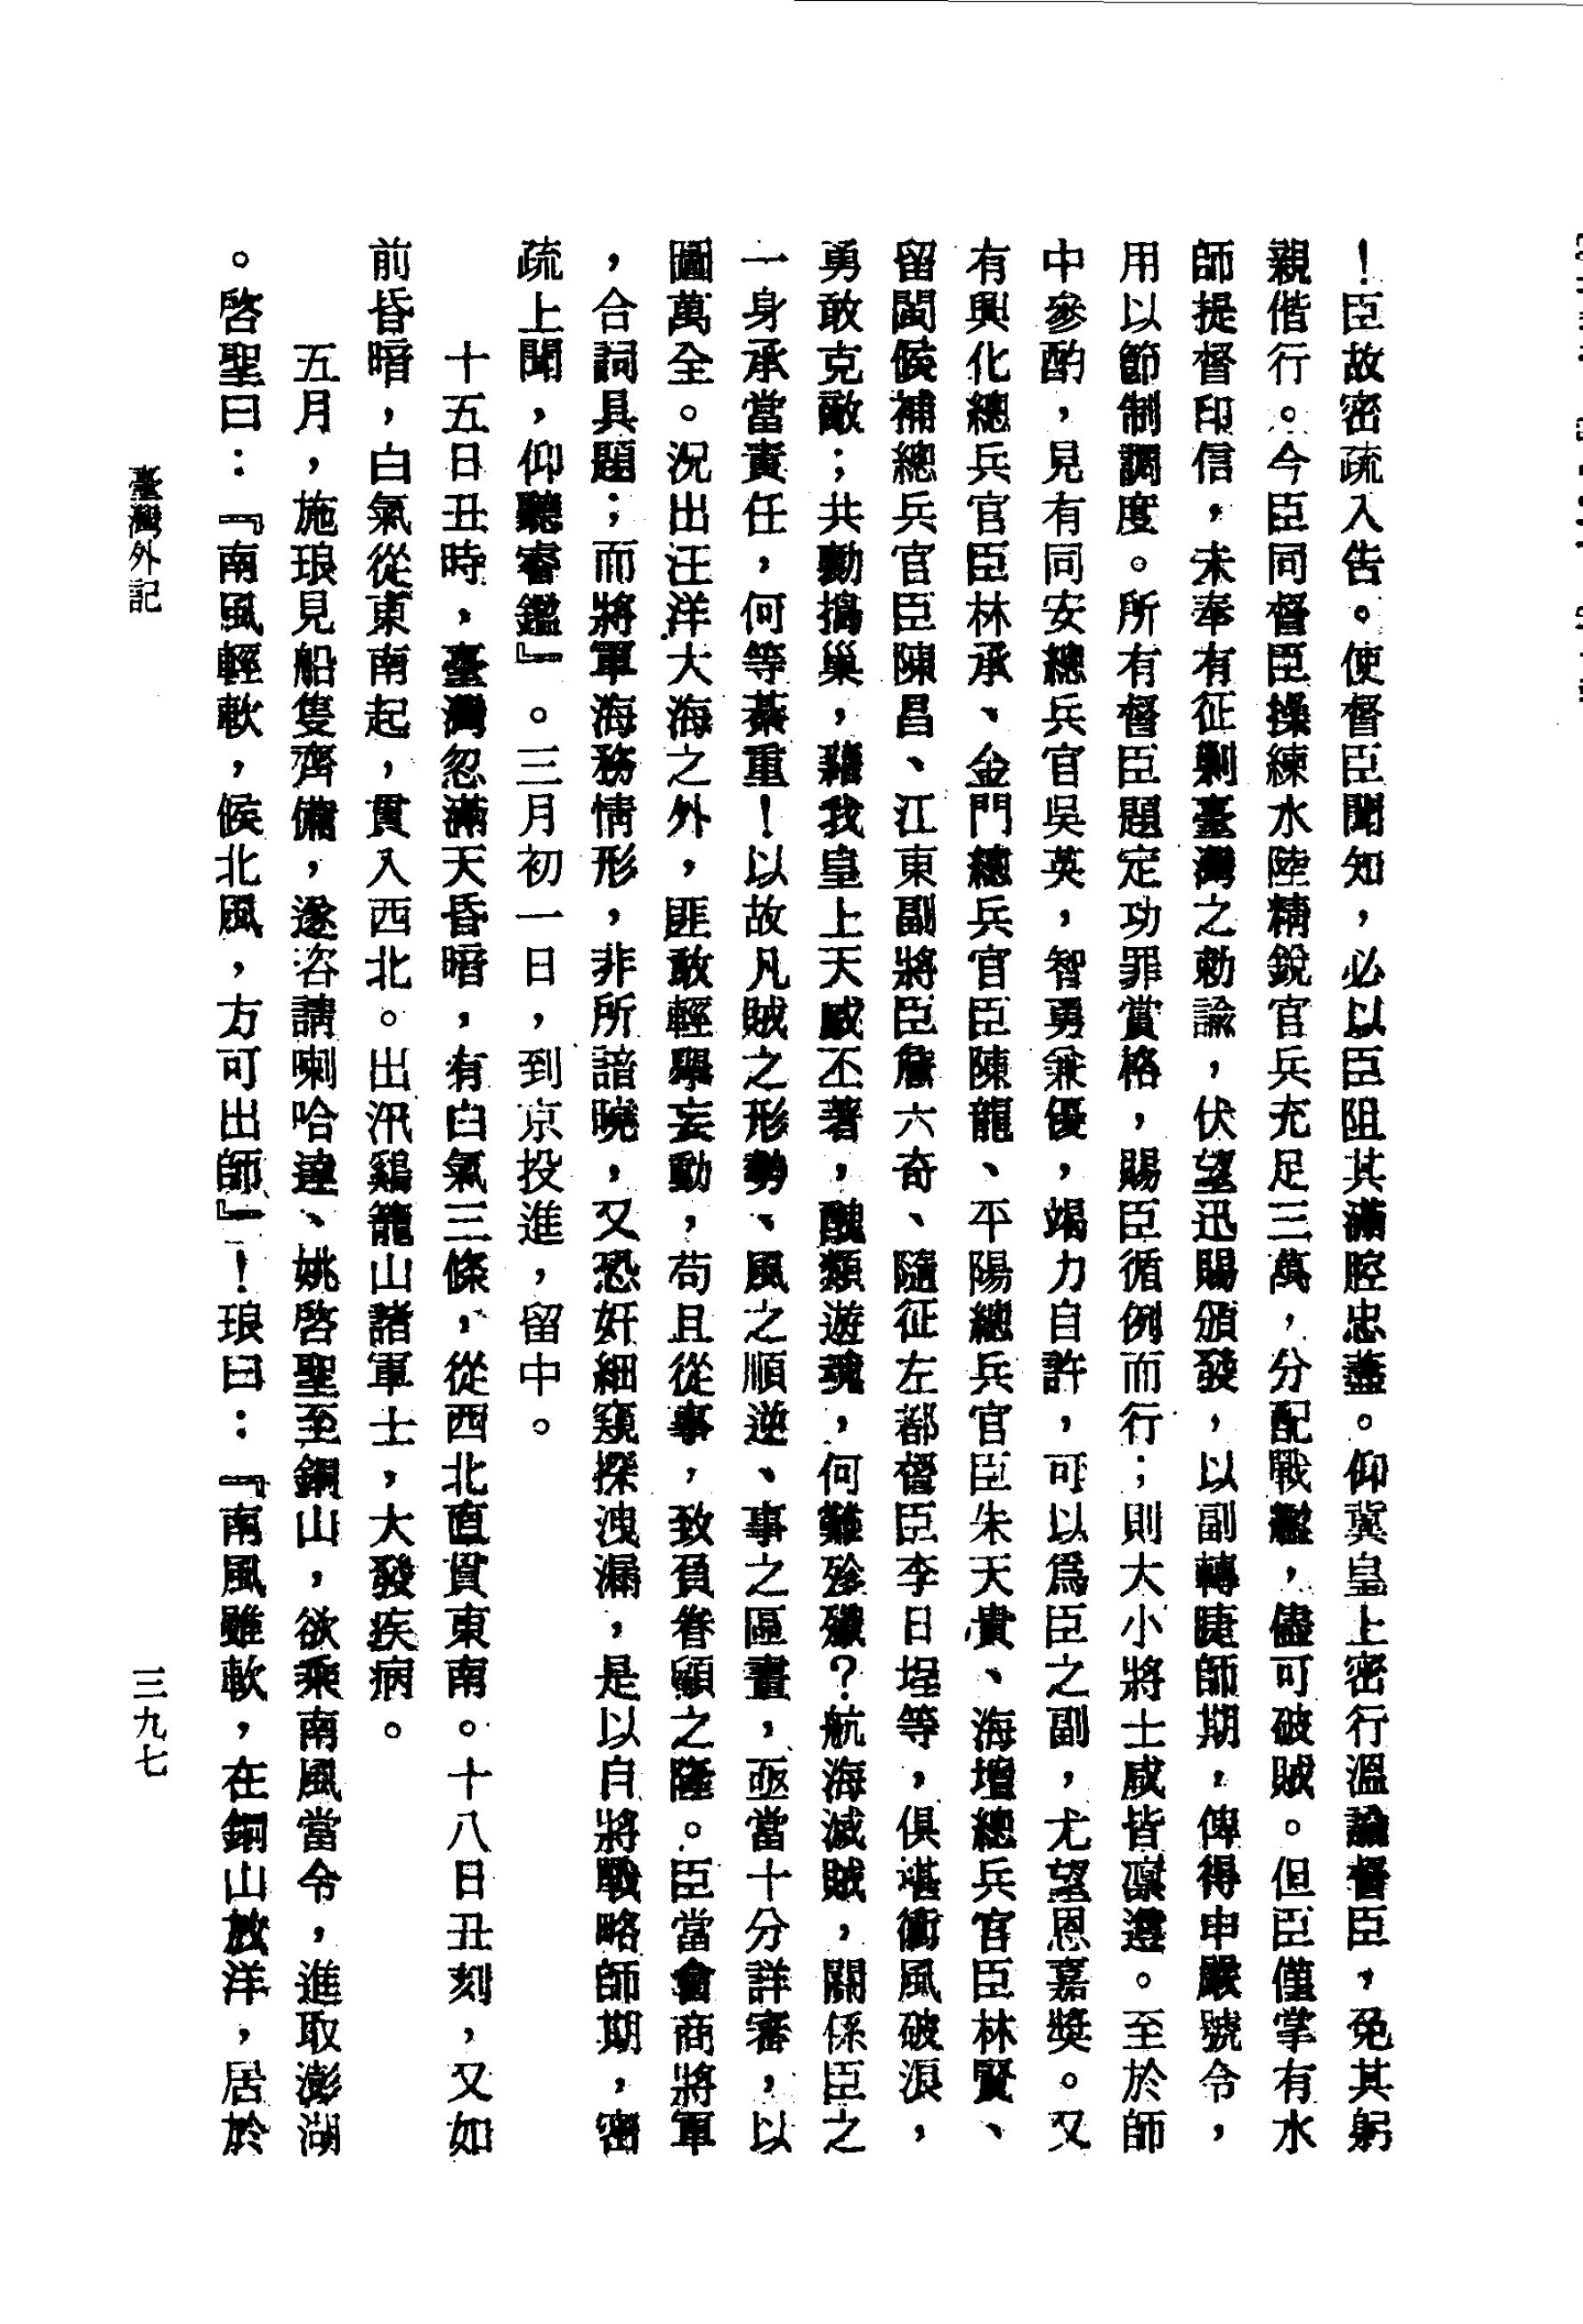 ！臣故密疏入告。使督臣聞知，必以臣阻其滿腔忠藎。仰冀皇上密行溫諭督臣，免其躬
親偕行。今臣同督臣操練水陸精銳官兵充足三萬，分配戰艦，儘可破賊。但臣僅掌有水
師提督印信，未奉有征剿臺灣之勅諭，伏望迅賜頒發，以副轉睫師期，俾得申嚴號令，
用以節制調度。所有督臣題定功罪賞格，賜臣循例而行；則大小將士咸皆凜遵。至於師
中參酌，見有同安總兵官吳英，智勇兼優，竭力自許，可以爲臣之副，尤望恩嘉獎。又
有興化總兵官臣林承、金門總兵官臣陳龍、平陽總兵官臣朱天貴、海壇總兵官臣林賢、
留閩候補總兵官臣陳昌、江東副將臣詹六奇、隨征左都督臣李日埕等，俱堪衝風破浪，
勇敢克敵；共勷搗巢，藉我皇上天威丕著，醜類遊魂，何難殄殲？航海滅賊，關係臣之
一身承當責任，何等綦重！以故凡賊之形勢、風之順逆、事之區畫，亟當十分詳審，以
圖萬全。況出汪洋大海之外，匪敢輕舉妄動，苟且從事，致負眷顧之隆。臣當會商將軍
，合詞具題；而將軍海務情形，非所諳曉，又恐奸細窺探洩漏，是以自將戰略師期，密
疏上聞，仰聽睿鑑』。三月初一日，到京投進，留中。
十五日丑時，臺灣忽滿天昏暗，有白氣三條，從西北直貫東南。十八日丑刻，又如
前昏暗，白氣從東南起，貫入西北。出汛鷄籠山諸軍士，大發疾病。
五月，施琅見船隻齊備，遂咨請喇哈達、姚啓聖至銅山，欲乘南風當令，進取澎湖
。啓聖曰：『南風輕軟，候北風，方可出師』！琅曰：『南風雖軟，在銅山放洋，居於
臺灣外記
三九七